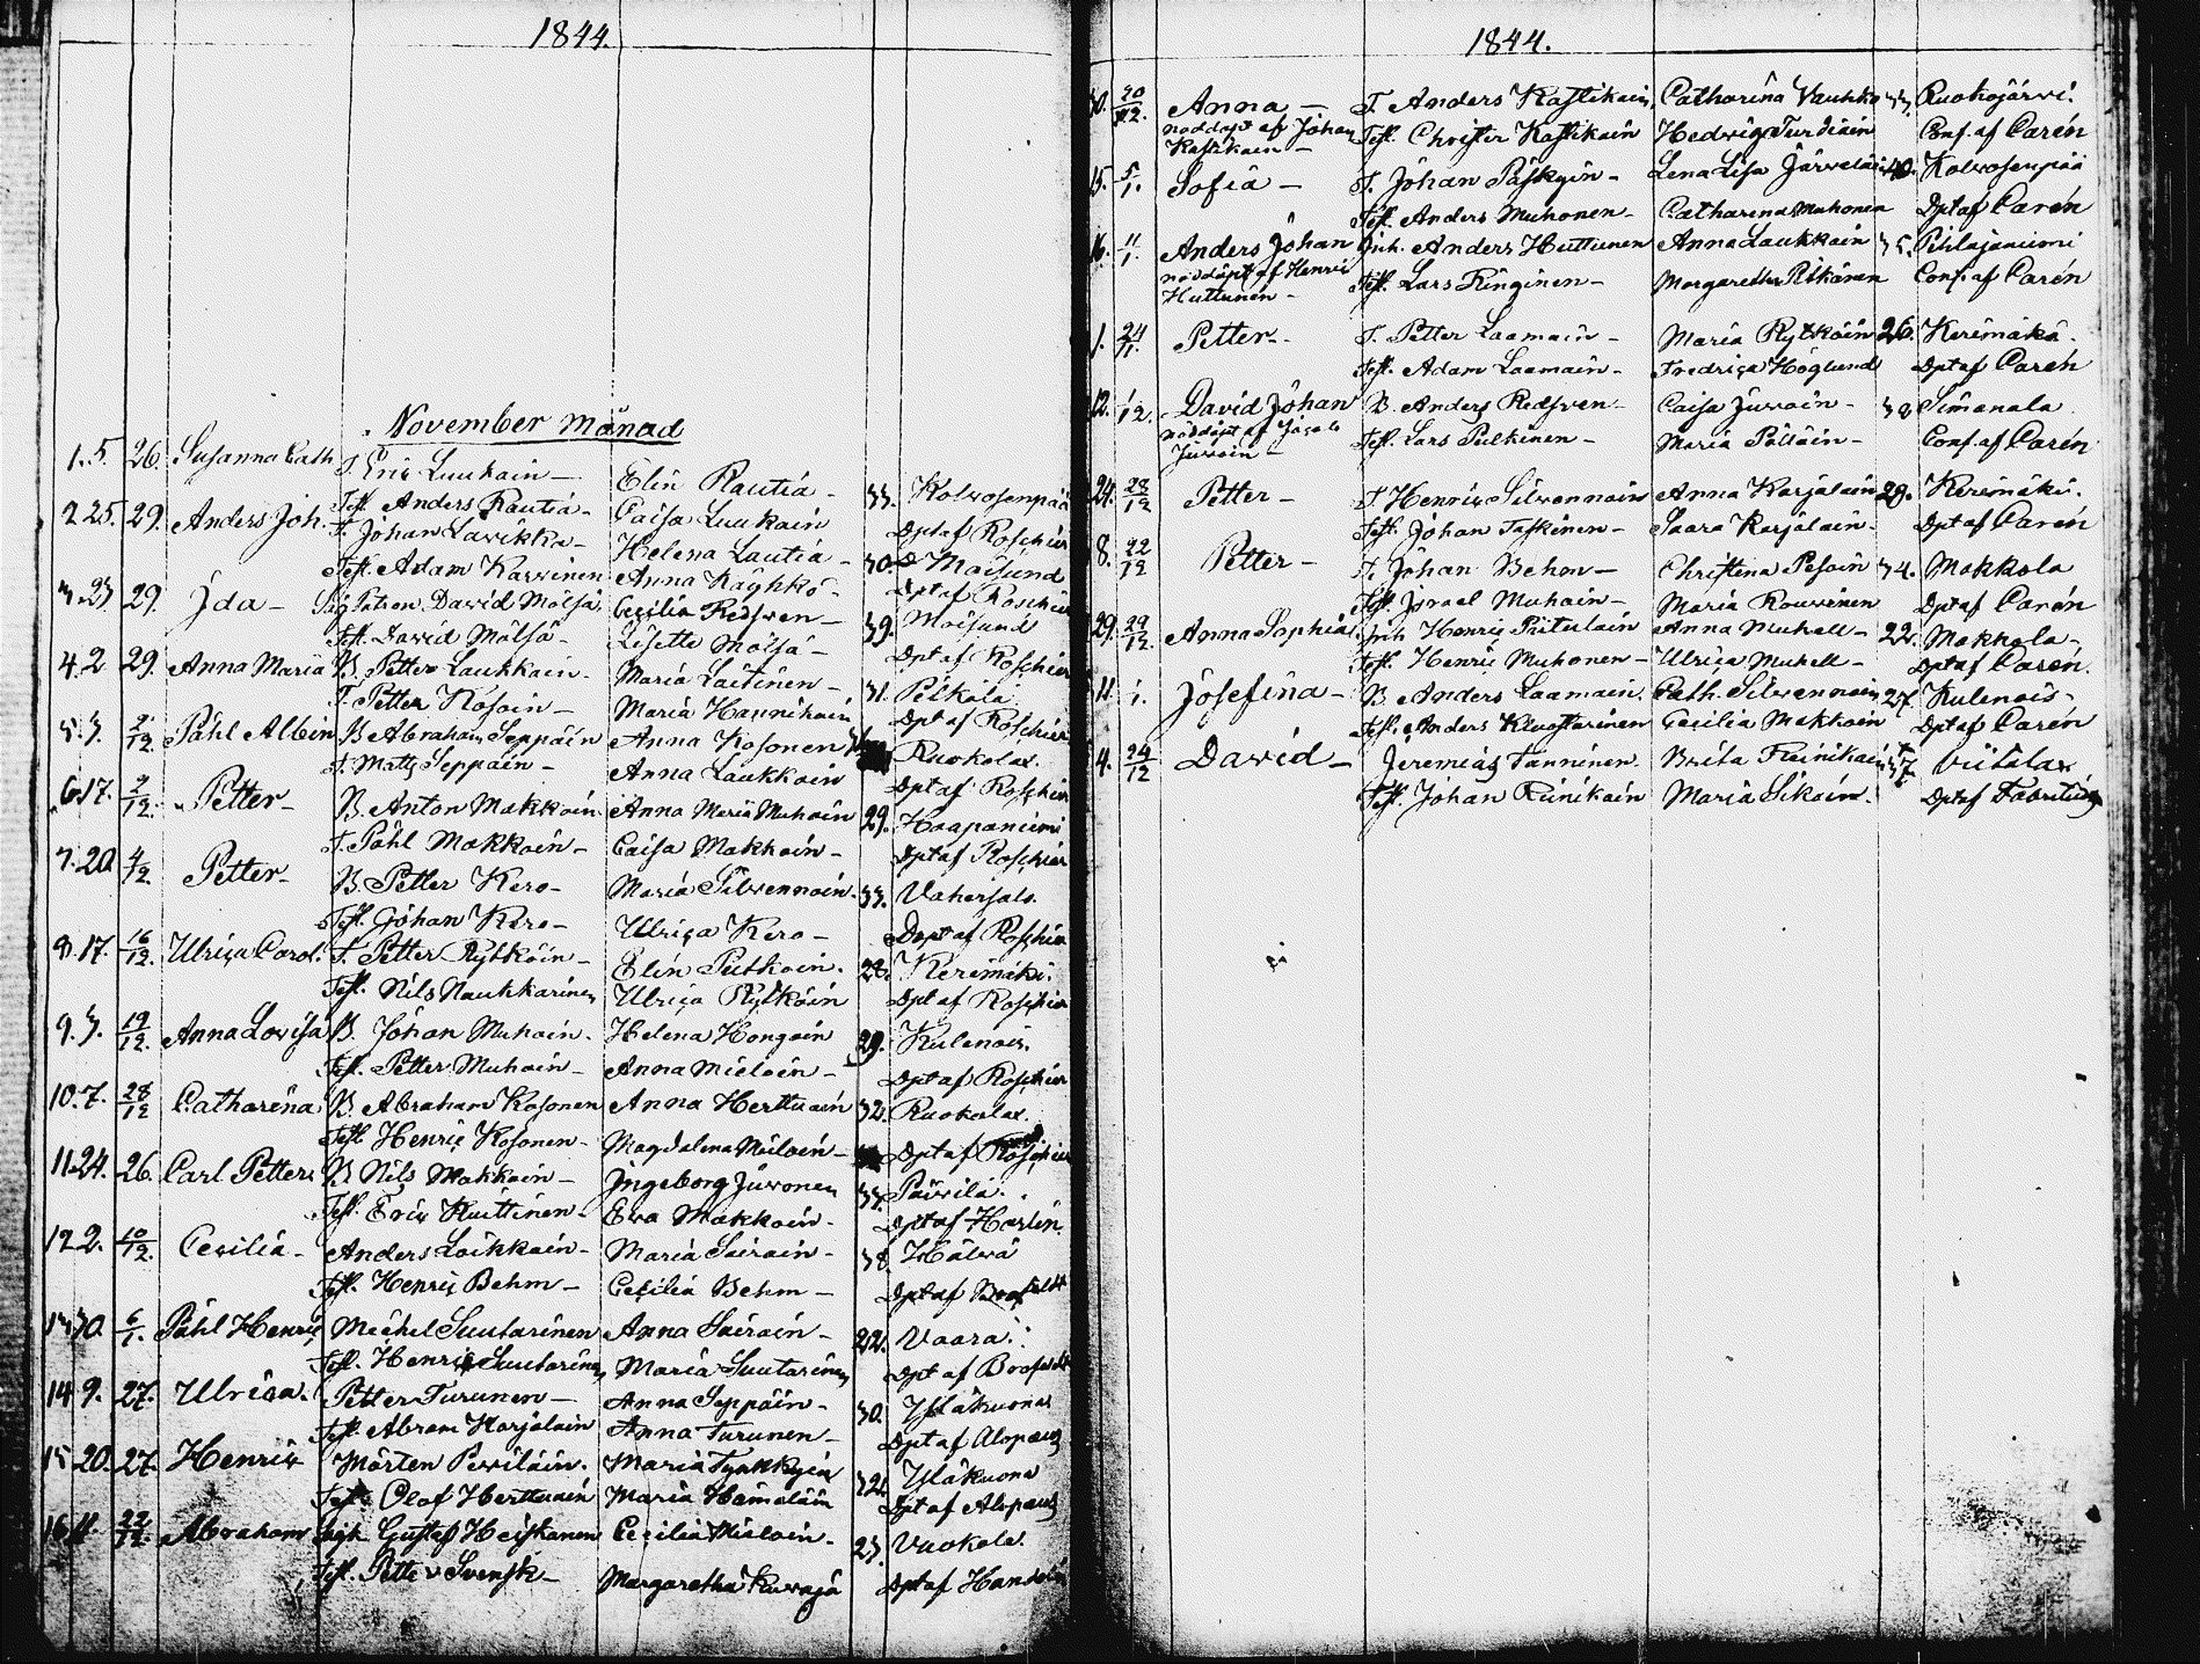 1844.
November Månad
1. 5. 26. Susanna Cath T. Eric Luukain - Elin Rautia - 33. Kolwosenpää
Test. Anders Rautia - Caisa Luukain Dpt af Roschier
2 25. 29. Anders Joh. T. Johan Lavikka - Helena Lautia - 30. Moisund
Test. Adam Karvinen Anna Käyhkö - Dpt af Roschier
3. 23 29. Ida - Såg Patron David Mölsä Cecilia Redsven - 39. Moisund
Test. David Mölsä - Lisette Mölsä - Dpt af Roschier
4. 2 29. Anna Maria B. Petter Laukkain - Maria Laitinen - 31. Pelkola
T. Petter Kosoin - Maria Hannikain Dpt af Roschier
5. 3. 2/12 Påhl Albin B Abraham Seppäin Anna Kosonen Ruokolax.
T. Matts Seppäin - Anna Laukkain Dpt af Roschier
6 17. 2/12. Petter - B. Anton Makkoin Anna Maria Muhoin 29. Haapaniemi
T. Påhl Makkoin - Caisa Makkoin - Dpt af Roschier
7. 20 4/12. Petter - B. Petter Kero - Maria Silvennoin. 33. Vahersalo
Test. Johan Kero - Ulrica Kero - Dopt af Roschier
8. 17. 16/12. Ulrica Carol. T. Petter Rytköin - Elin Putkoin. 28. Kerimäki.
Test. Nils Naukkarinen Ulrica Rytköin Dpt af Roschier
9. 3. 19/12. Anna Lovisa B. Johan Muhoin. Helena Hongoin 29. Kulenois.
Test. Petter Muhoin - Anna Mieloin - Dpt af Roschier
10. 7. 28/12 Catharina B. Abraham Kosonen Anna Herttuain 32. Ruokolax.
Test Henric Kosonen - Magdalena Moiloin - Dpt af Roschier
11 24. 26. Carl Petter B Nils Makkoin - Ingeborg Juvonen 37. Päivilä.
Test. Eric Kuittinen - Eva Makkoin - Dpt af Harlin
12 2. 10/12. Cecilia - Anders Loikkain - Maria Sairain - 38. Hälvä
Test. Henric Behm - Cecilia Behm - Dpt af Brofeldt
13 30. 6/1. Påhl Henric Michel Suutarinen Anna Sairain - 22. Vaara.
Test. Henric Suutarinen Maria Suutarinen Dpt af Brofeldt
14 9. 27. Ulrica. Petter Turunen - Anna Seppäin - 30. Yläkuona
Test. Abram Karjalain Anna Turunen - Dpt af Alopæus
15 20. 27. Henric Mårten Peviläin. Maria Tynkkyin 32. Yläkuona
Test. Olof Herttuain Maria Hämäläin Dpt af Alopæus
16 11. 22/12. Abraham Gustaf Heiskanen Cecilia Mieloin - 23. Vuokala.
Test. Petter Svensk - Margaretha Kuvaja Dpt af Handolin
1844.
30. 20/12. Anna - T. Anders Kastikain Catharina Vauhko 33. Ruokojärvi.
nöddöpt af Johan Test. Christer Kastikain Hedwig Turdiain Conf. af Carén
Kastikain -
15. 5/1. Sofia - T. Johan Päskyin - Lena Lisa Järveläin 40. Kolvosenpää
Test. Anders Muhonen - Catharina Muhonen Dpt af Carén
16. 11/1. Anders Johan Inh. Anders Huttunen Anna Laukkain 35. Pihlajaniemi
nöddöpt af Henric Test. Lars Kinginen - Margaretha Pitkänen Conf. af Carén
Huttunen -
1. 24/11. Petter - T. Petter Laamain - Maria Rytköin 26. Kerimäki.
Test. Adam Laamain - Fredrica Höglund Dpt af Carén
12. 1/12. David Johan B. Anders Redsven - Caisa Juvoin - 38 Simanala
nöddöpt af Jacob Test. Lars Pulkinen - Maria Pölläin - Conf. af Carén
Juvoin -
24. 28/12 Petter - T Henric Silvennoin Anna Karjalain 28. Kerimäki.
Test. Johan Taskinen - Saara Karjalain. Dpt af Carén
8. 22/12 Petter - T. Johan Behm - Christina Pesoin 34. Makkola
Test. Israel Muhoin - Maria Rouvinen Dpt af Carén
29. 29/12. Anna Sophia. Inh Henric Piitulain Anna Muhell - 22. Makkola -
Test. Henric Muhonen - Ulrica Muhell - Dpt af Carén.
11. 1/1. Josefina - B. Anders Laamain. Cath. Silvennoin 27. Kulenois -
Test. Anders Kluostarinen Cecilia Makkoin Dpt af Carén
4. 24/12 David - Jeremias Tanninen. Brita Reinikain 37 Viitalax
Test. Johan Reinikain Maria Sikoin. Dpt af Fabritius